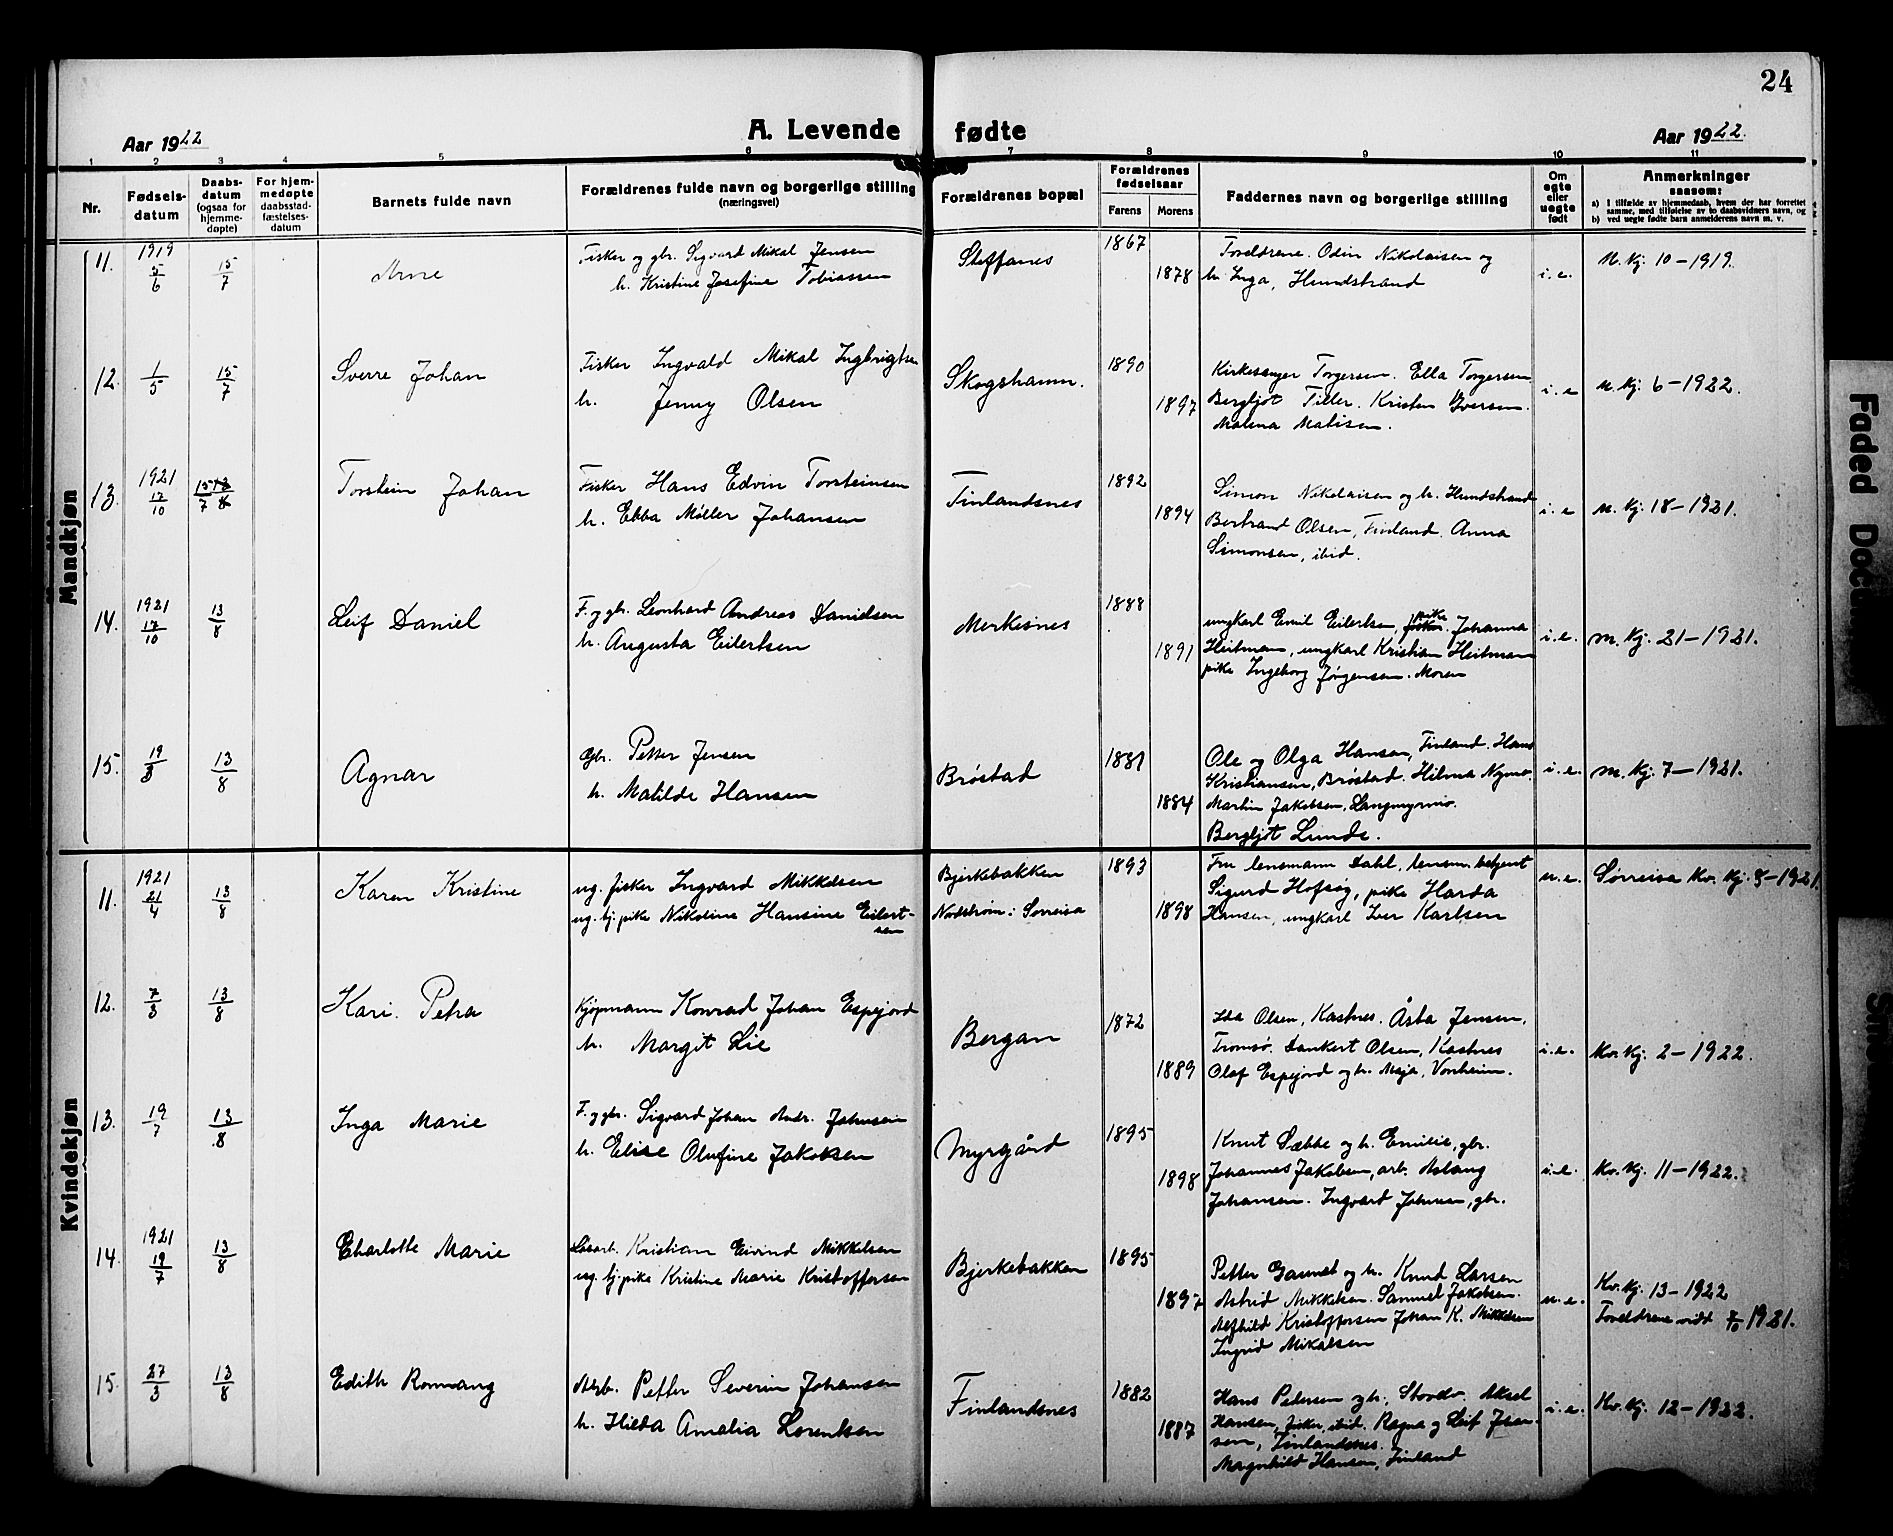 24
A. Levende fødte
Aar 1922
Aar 1922.
1 2 3 4 5 6 7 8 9 10 11
Nr.
Fødsels-
datum
Daabs-
datum
(ogsaa for
hjemme-
døpte)
For hjem-
medøpte
daabsstad-
fæstelses-
datum
Barnets fulde navn
Forældrenes fulde navn og borgerlige stilling
(næringsvei)
Forældrenes bopæl
Forældrenes
fødselsaar
Farens Morens
Faddernes navn og borgerlige stilling
Om
egte
eller
uegte
født
Anmerkninger
saasom:
a) I tilfælde av hjemmedaab, hvem der har forrettet
samme, med tilføielse av to daabsvidners navn, og
b) ved uegte fødte barn anmelderens navn m. v.
Mandkjøn
11. 1919 5/6 15/7 Arne
Fisker og gbr. Sigvard Mikal Jensen
h. Kristine Josefine Tobiassen
Steffanes 1867 1878
Foreldrene. Odin Nikolaisen og
h. Inga, Hundstrand
i.e. M. Kj. 10-1919.
12. 1/5 15/7 Sverre Johan
Fisker Ingvald Mikal Ingbrigtsen
h. Jenny Olsen
Skogshamn. 1890 1897
Kirkesanger Torgersen. Ella Torgersen
Bergljot Tiller. Kristen Iversen.
Malena Matisen.
i.e M. Kj. 6-1922.
13. 1921 17/10 15/7 Torstein Johan
Fisker Hans Edvin Torsteinsen
h. Ebba Møller Johansen
Finlandsnes 1892 1894
Simon Nikolaisen og h. Hundstrand
Bertrand Olsen, Finland. Anna
Simonsen, ibid.
i.e M. Kj. 18-1921.
14. 1921 17/10 13/8 Leif Daniel
F. og gbr. Leonhard Andreas Danielsen
h. Augusta Eilertsen
Merkesnes 1888 1891
ungkarl Emil Eilertsen, pike Johanna
Heitmann, ungkarl Kristian Heitmann
pike Ingeborg Jørgensen. Moren
i.e. M. Kj. 21-1921.
15. 19/3 13/8 Agnar
Gbr. Petter Jensen
h. Matilde Hansen
Brøstad 1881 1884
Ole og Olga Hansen, Finland. Hans
Kristiansen, Brøstad. Hilma Nymo.
Martin Jakobsen, Langmyrmo.
Bergljot Lunde.
i.e. M. Kj. 7-1921.
Kvindekjøn
11. 1921 21/4 13/8 Karen Kristine
ug. fisker Ingvard Mikkelsen
ug. tj.pike Nikoline Hansine Eilert-
sen
Bjerkebakken
Nordstrøm i Sørreisa
1893 1898
Fru lensmann Dahl, lensm. betjent
Sigurd Hofsøy, pike Harda
Hansen, ungkarl Iver Karlsen
u.e. Sørreisa Kv. Kj. 5-1921.
12. 7/3 13/8 Kari. Petra
Kjøpmann Konrad Johan Espejord
h. Margit Lie
Bergan 1872 1889
Ida Olsen, Kastnes. Åsta Jensen,
Tromsø. Dankert Olsen, Kastnes
Olaf Espejord og h. Maja, Vonheim.
i.e. Kv. Kj. 2-1922.
13. 19/7 13/8 Inga Marie
F. og gbr. Sigvard Johan Andr. Johnsen
h. Elise Olufine Jakobsen
Myrgård 1895 1898
Knut Sæbbe og h. Emilie, gbr.
Johannes Jakobsen, arb. Aslaug
Johansen. Ingvard Johnsen, gbr.
i.e. Kv. Kj. 11-1922.
14. 1921 19/7 13/8 Charlotte Marie
Løsarb. Kristian Eivind Mikkelsen
ug. tj.pike Kristine Marie Kristoffersen
Bjerkebakken 1895 1897
Petter Gamst og h. Knud Larsen
Astrid Mikkelsen. Samuel Jakobsen.
Alfhild Kristoffersen Johan K. Mikkelsen
Ingrid Mikalsen
u.e. Kv. Kj. 13-1922
Foreldrene vidt 7/10 1921.
15. 27/3 13/8 Edith Romnang
Arb. Petter Severin Johansen
h. Hilda Amalia Lorentsen
Finlandsnes 1882 1887
Hans Petersen og h., Stordo. Aksel
Hansen, fisker, ibid. Ragna og Leif Jen-
sen, Finlandsnes.
Magnhild Hansen, Finland
i.e. Kv. Kj. 12-1922.
Faded Docu